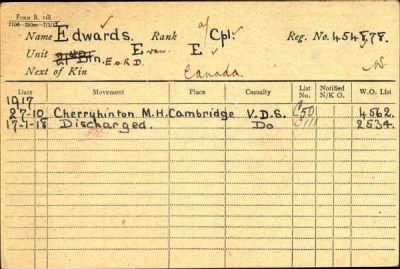 FORM B. 103.
Name Edwards. Rank a/Cpl. Reg. No. 454878.
Unit 21st Btn. E. E.O.R.D.
Next of Kin Canada.
Date Movement Place Casualty List No. Notified N/K O. W.O. List
1917
27-10 Cherryhinton M.H. Cambridge V.D.S. C50 4562.
17-1-18 Discharged. Do C111 2534.